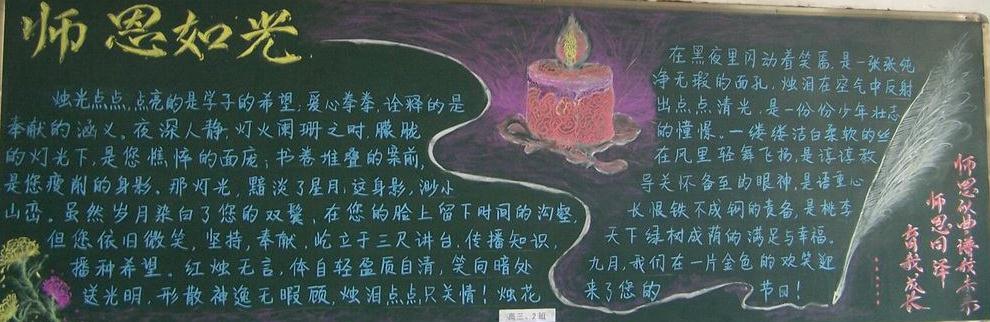 师恩如光
烛光点点,点亮的是学子的希望;爱心拳拳,诠释的是
奉献的涵义。夜深人静,灯火阑珊之时,朦胧
的灯光下,是您憔悴的面庞;书卷堆叠的案前,
是您瘦削的身影。那灯光,黯淡了星月;这身影,渺小
山峦。虽然岁月染白了您的双鬓,在您的脸上留下时间的沟壑
但您依旧微笑,坚持,奉献,屹立于三尺讲台,传播知识,
播种希望。红烛无言,体自轻盈质自清,笑向暗处
送光明,形散神逸无暇顾,烛泪点点只关情!烛花
在黑夜里闪动着笑靥,是一张张纯
净无瑕的面孔,烛泪在空气中反射
出点点清光,是一份份少年壮志
的憧憬。一缕缕洁白柔软的丝
在风里轻舞飞扬,是谆谆教
导关怀备至的眼神,是语重心
长恨铁不成钢的责备,是桃李
天下绿树成荫的满足与幸福。
九月,我们在一片金色的欢笑迎
来了您的 节日!
师恩
师恩同泽
育我成长
高三、2班